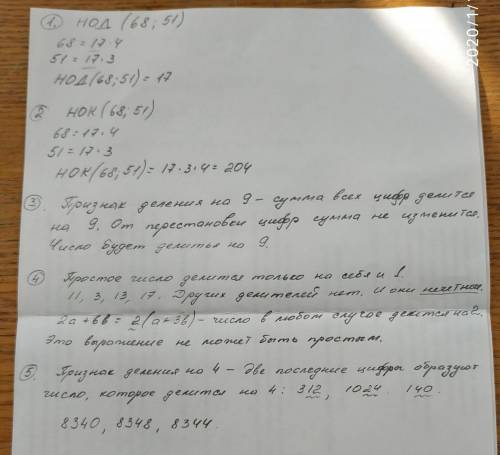 1. НОД (68; 51)
68 = 17 · 4
51 = 17 · 3
НОД (68; 51) = 17
2 НОК (68; 51)
68 = 17 · 4
51 = 17 · 3
НОК (68; 51) = 17 · 3 · 4 = 204
3. Признак деления на 9 – сумма всех цифр делится
на 9. От перестановки цифр сумма не изменится.
Число будет делиться на 9.
4 Простое число делится только на себя и 1.
11, 3, 13, 17. Других делителей нет. И они нечетные.
2a + 6b = 2(a + 3b) – число в любом случае делится на 2.
Это выражение не может быть простым.
5. Признак деления на 4 – две последние цифры образуют
число, которое делится на 4: 312, 1024. 140.
8340, 8348, 8344.
2020/1/1